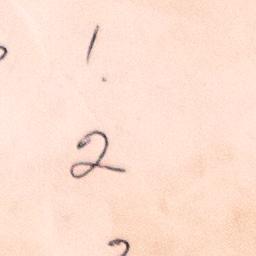 1.
2